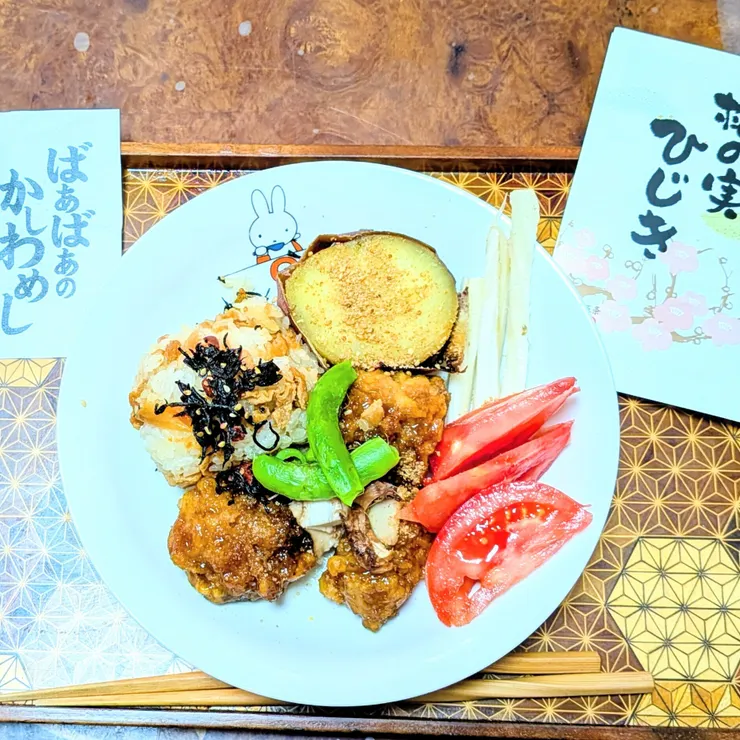 ばぁばぁの
かしわめし
梅の実
ひじき